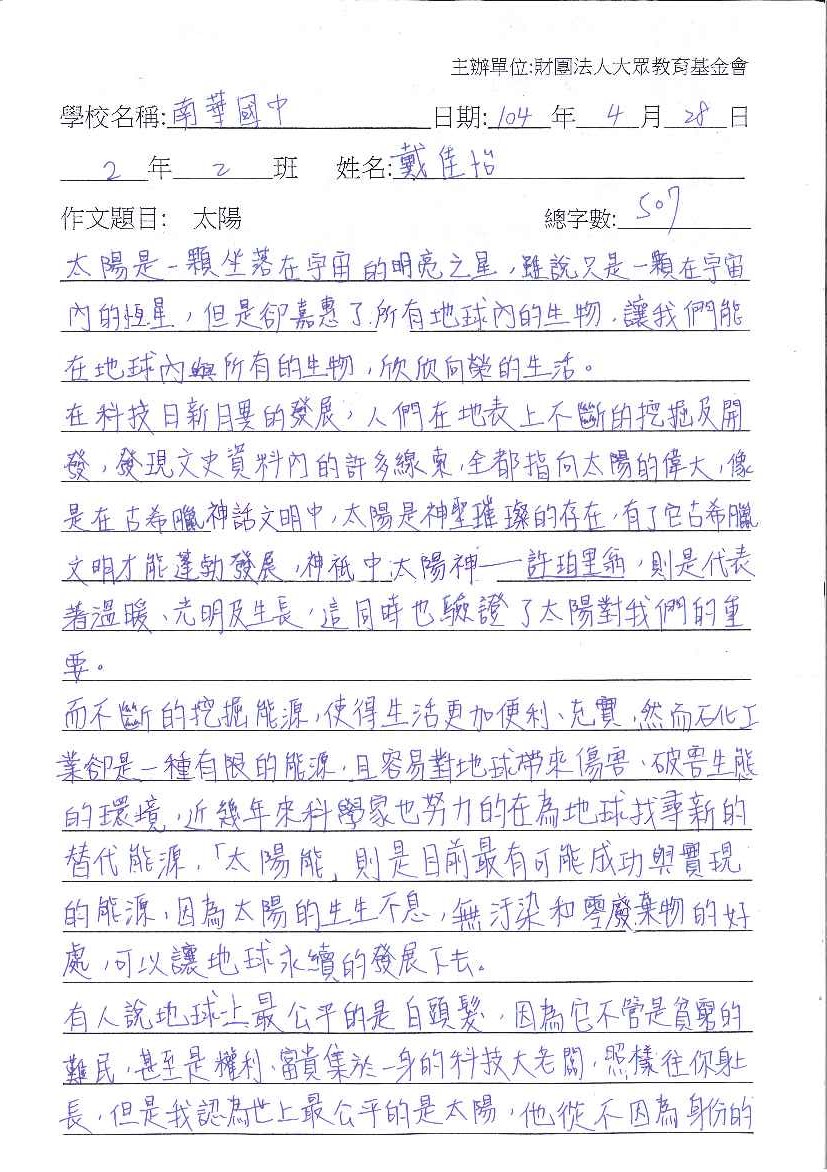 主辦單位:財團法人大眾教育基金會
學校名稱:南華國中 日期:104年4月28日
2年2班 姓名:戴佳怡
作文題目: 太陽 總字數:507
太陽是一顆坐落在宇宙的明亮之星，雖說只是一顆在宇宙
內的恆星，但是卻嘉惠了所有地球內的生物，讓我們能
在地球內與所有的生物，欣欣向榮的生活。
在科技日新月異的發展，人們在地表上不斷的挖掘及開
發，發現文史資料內的許多線索，全都指向太陽的偉大，像
是在古希臘神話文明中，太陽是神聖璀璨的存在，有了它古希臘
文明才能蓬勃發展，神祇中太陽神——許珀里翁，則是代表
著溫暖、光明及生長，這同時也驗證了太陽對我們的重
要。
而不斷的挖掘能源，使得生活更加便利、充實，然而石化工
業卻是一種有限的能源，且容易對地球帶來傷害、破害生態
的環境，近幾年來科學家也努力的在為地球找尋新的
替代能源，「太陽能」則是目前最有可能成功與實現
的能源，因為太陽的生生不息，無汙染和零廢棄物的好
處，可以讓地球永續的發展下去。
有人說地球上最公平的是白頭髮，因為它不管是貧窮的
難民，甚至是權利、富貴集於一身的科技大老闆，照樣往你身上
長，但是我認為世上最公平的是太陽，他從不因為身份的